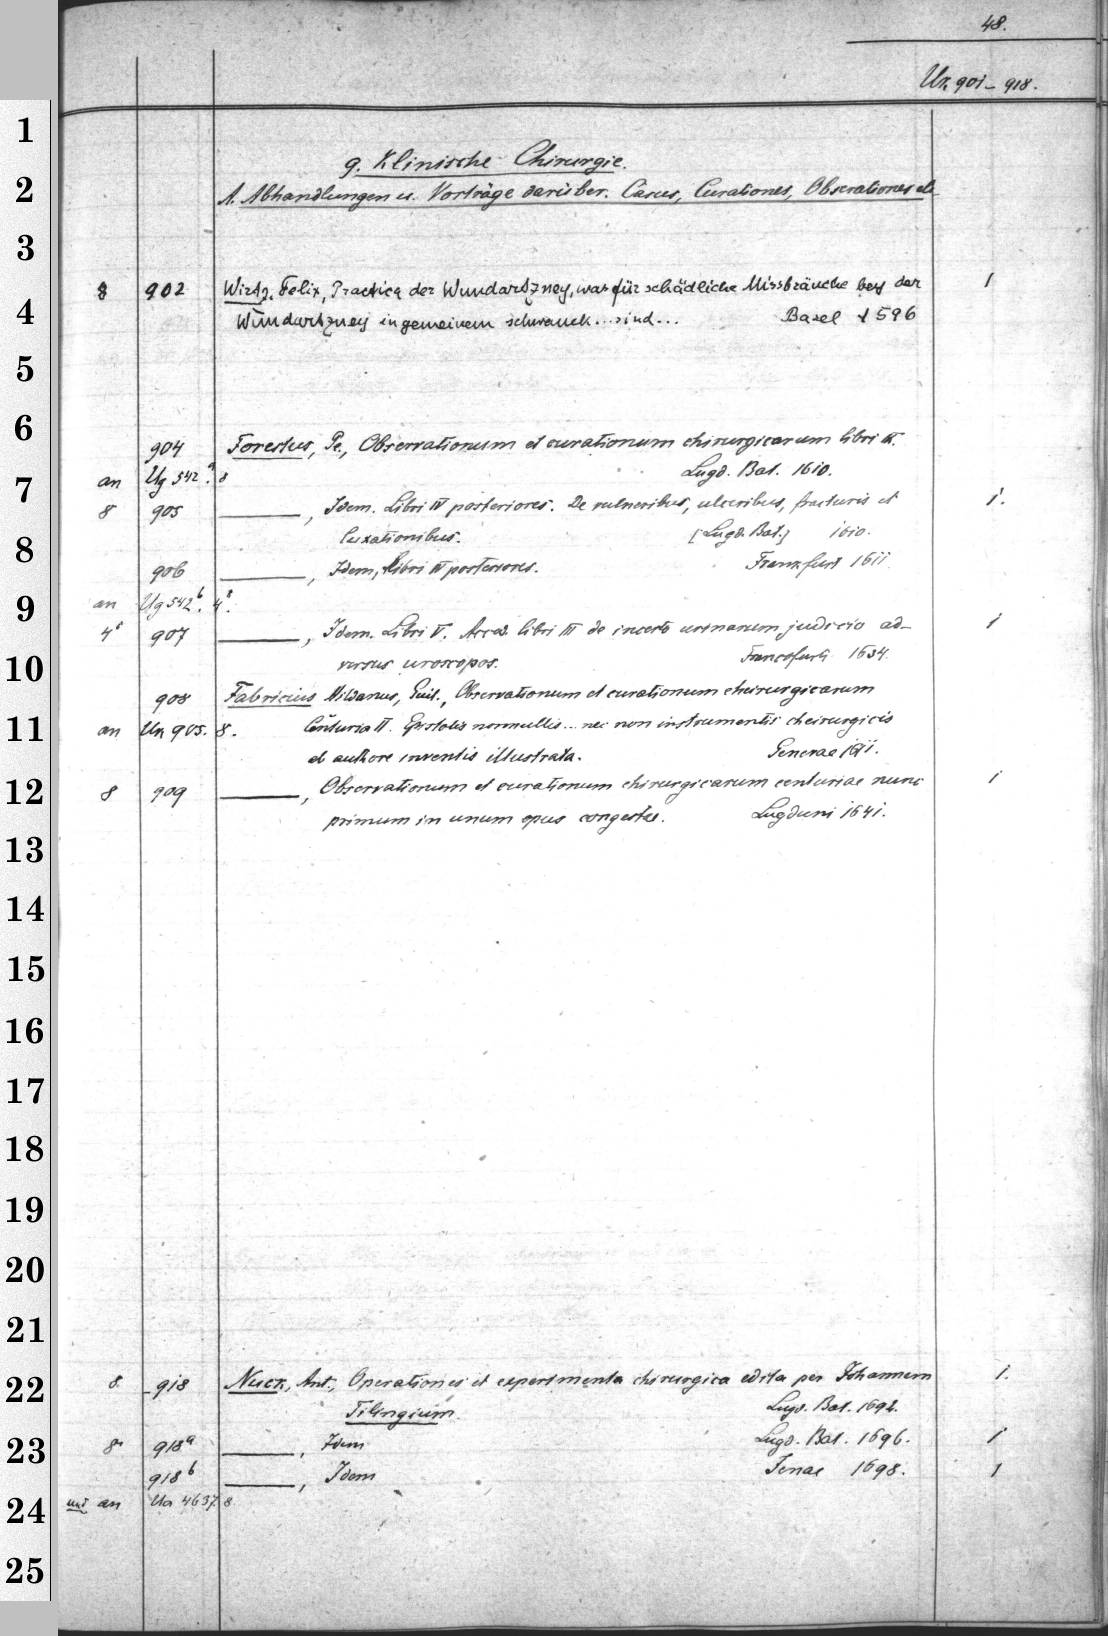 48.
Un 901-918.
9. Klinische Chirurgie.
A. Abhandlungen u. Vorträge darüber. Casus, Curationes, Observationes etc
8 902 Wirtz, Felix, Practica der Wundartzney, was für schädliche Missbräuche bey der 1
Wundartzney in gemeinem schwanck... sind... Basel 1596
904 Forestus, Pe., Observationum et curationum chirurgicarum libri V.
an Ug 542.a 8 Lugd. Bat. 1610.
8 905 ———, Idem. Libri IV posteriores. De vulneribus, ulceribus, fracturis et 1.
luxationibus. [Lugd. Bat.] 1610.
906 ———, Idem, Libri IV posteriores. Frankfurt 1611
an Ug 542b. 4°.
4° 907 ———, Idem. Libri V. Acced. libri III de incerto urinarum judicio ad- 1
versus uroscopos. Francofurti 1634.
908 Fabricius Hildanus, Guil., Observationum et curationum cheirurgicarum
an Un 905. 8. Centuria II. Epistolis nonnullis... nec non instrumentis cheirurgicis
et authore inventis illustrata. Genevae 1611.
8 909 ———, Observationum et curationum chirurgicarum centuriae nunc 1
primum in unum opus congestae. Lugduni 1641.
8. 918 Nuck, Ant., Operationes et experimenta chirurgica edita per Johannem 1.
Tilingium. Lugd. Bat. 1692.
8° 918a ———, Idem Lugd. Bat. 1696. 1
918b ———, Idem Jenae 1698. 1
und an Ua 4637. 8
1
2
3
4
5
6
7
8
9
10
11
12
13
14
15
16
17
18
19
20
21
22
23
24
25